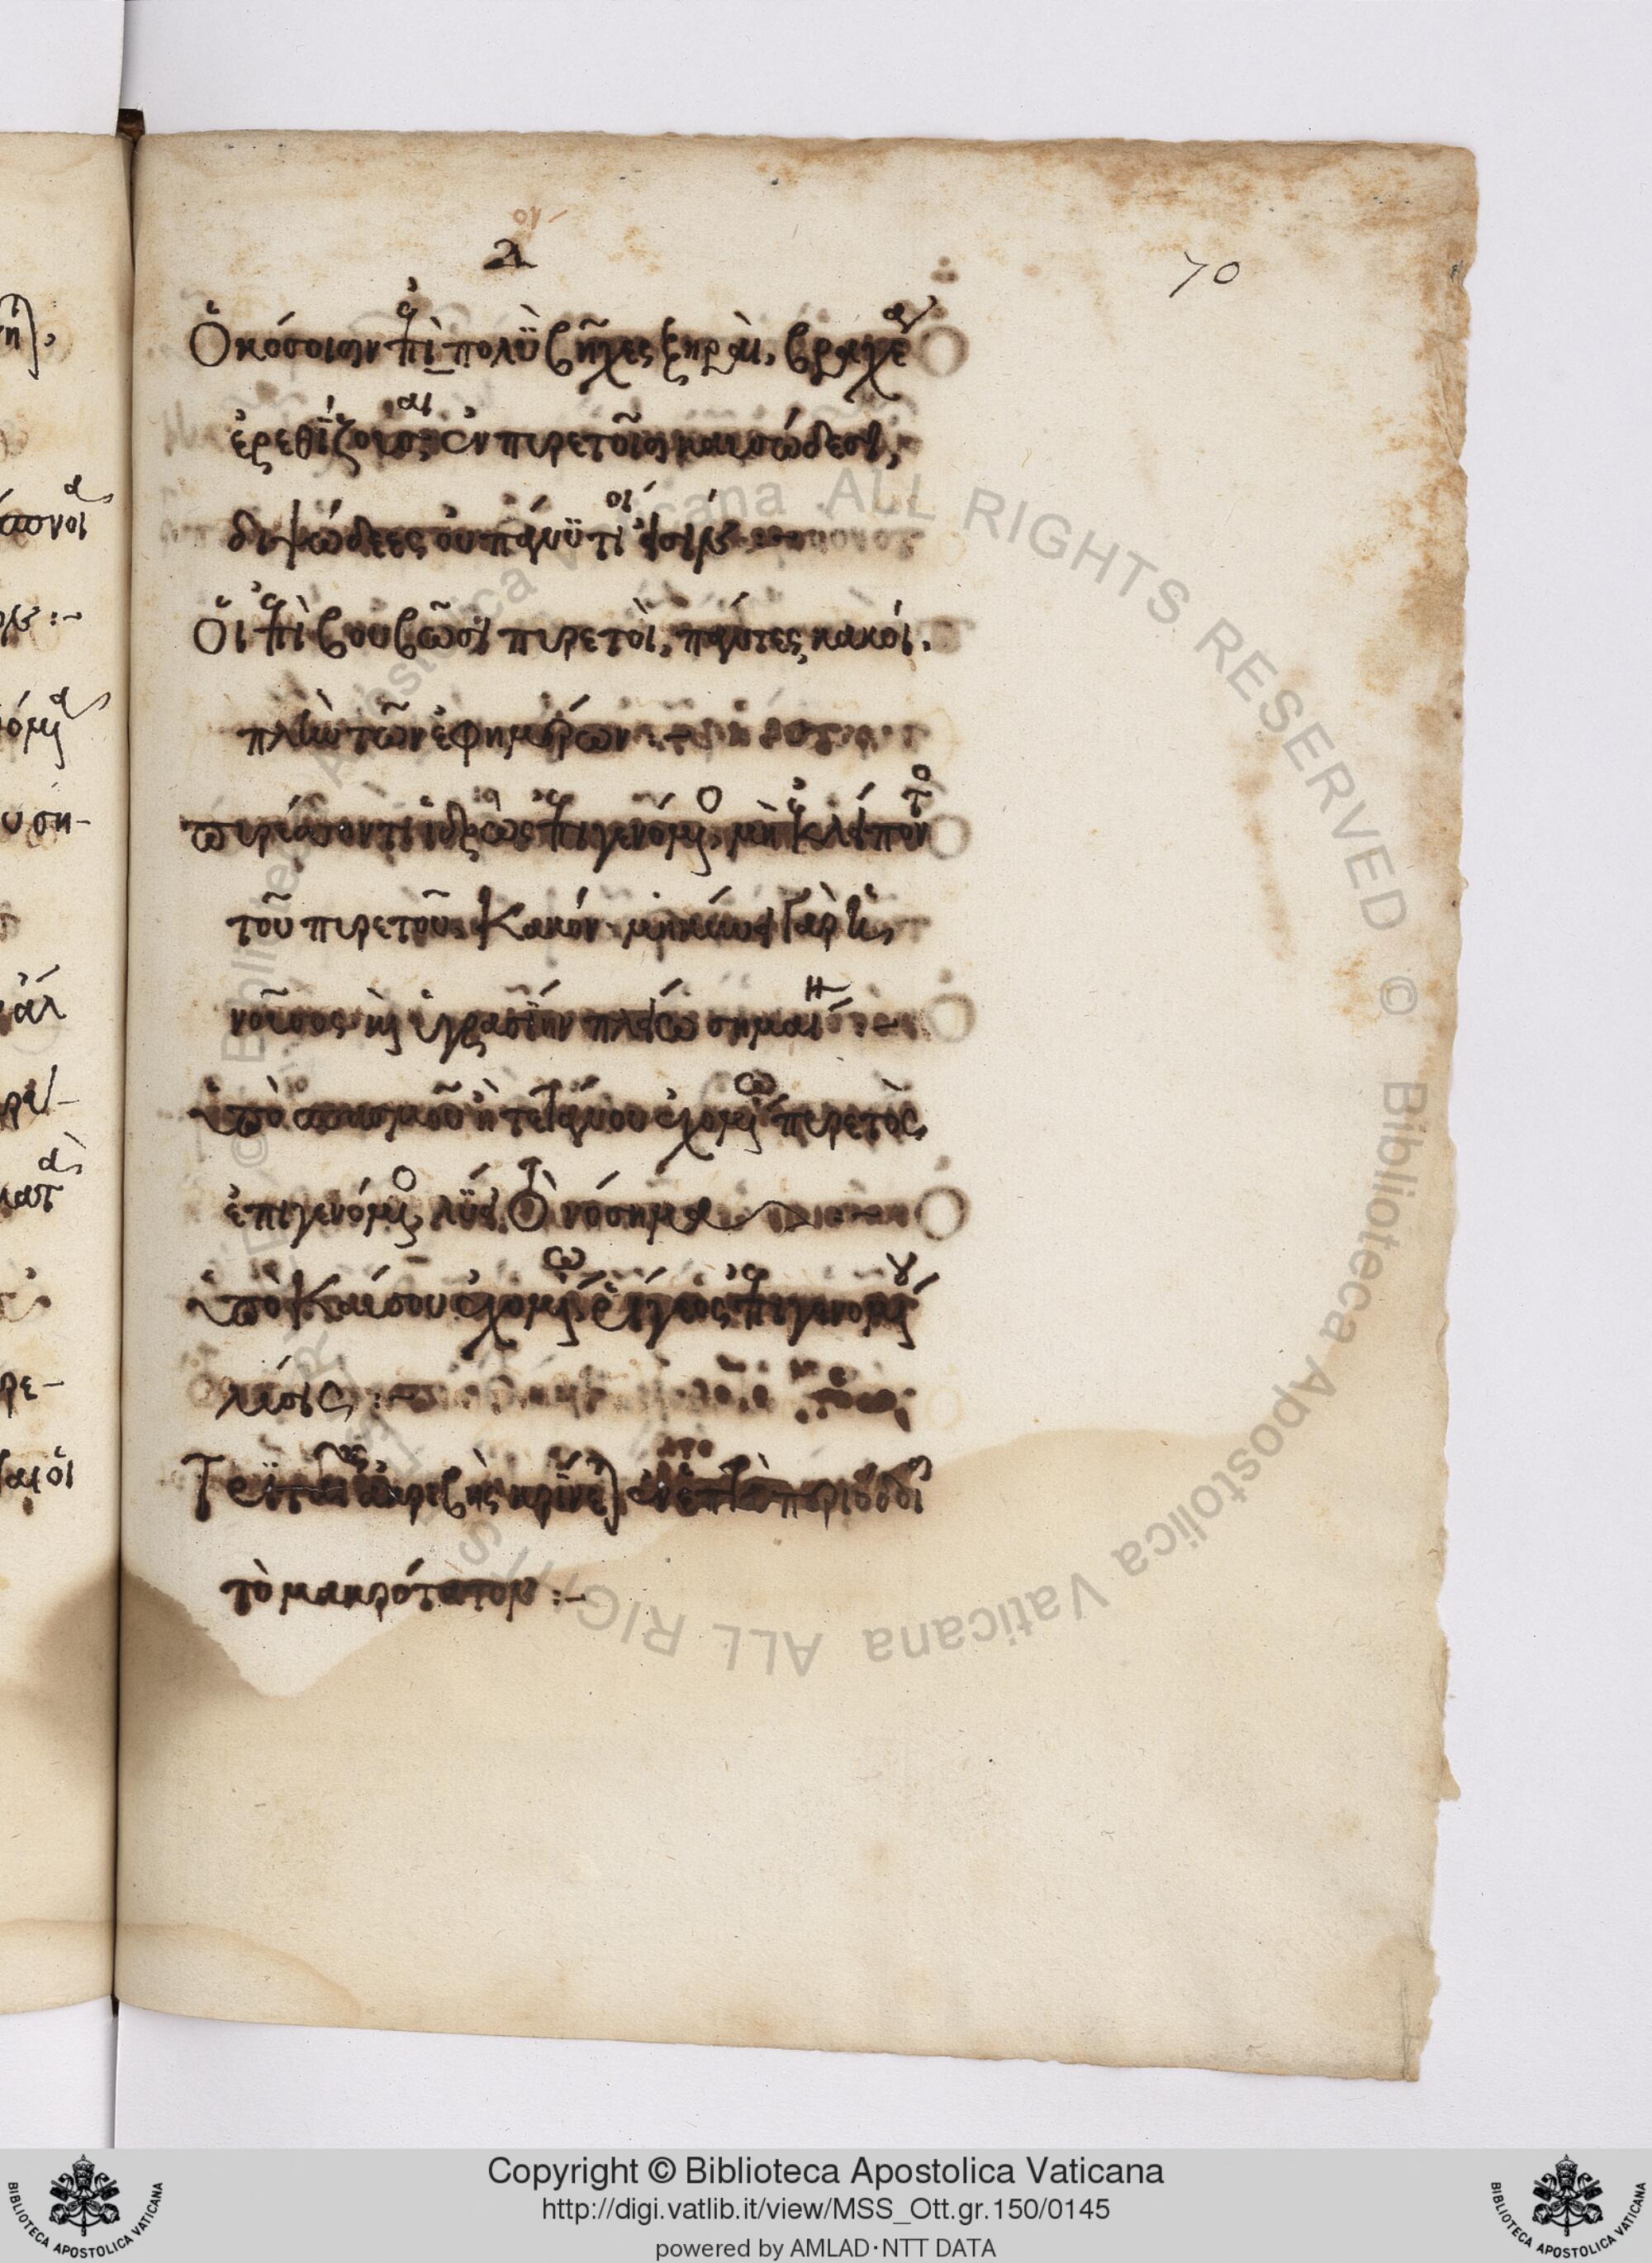 70
λ
Ὁκόσοισιν ἐπὶ πολὺ βῆχες ξηραὶ, βραχέα
ἐρεθίζουσαι ἐν πυρετοῖσι καυσώδεσιν,
διψώδεες οὐ πάνυ τί εἰσιν :-
Οἱ ἐπὶ βουβῶσι πυρετοὶ, πάντες κακοί.
πλὴν τῶν ἐφημέρων :-
πυρέσσοντι ἱδρὼς ἐπιγενόμενος, μὴ ἐκλείποντος
τοῦ πυρετοῦ. κακόν. μηκύνει γὰρ ἡ
νοῦσος καὶ ὑγρασίην πλείω σημαίνει :-
ὑπὸ σπασμοῦ ἢ τετάνου ἐχομένω πυρετὸς,
ἐπιγενόμενος, λύει τὸ νόσημα :-
ὑπὸ καύσου ἐχομένω, ῥίγεος ἐπιγενομένου
λύσις :-
Τριταῖος ἀκριβὴς κρίνεται ἐν ἑπτὰ περιόδοις
τὸ μακρότατον :-
© Biblioteca Apostolica Vaticana ALL RIGHTS RESERVED © Biblioteca Apostolica Vaticana ALL RIGHTS RESERVED
Copyright © Biblioteca Apostolica Vaticana
http://digi.vatlib.it/view/MSS_Ott.gr.150/0145
powered by AMLAD·NTT DATA
BIBLIOTECA APOSTOLICA VATICANA
BIBLIOTECA APOSTOLICA VATICANA